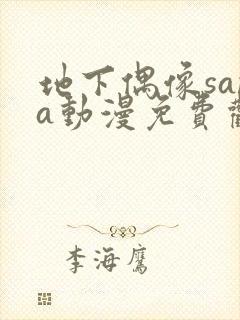 地下偶像sa
a動漫免費
李海鷹